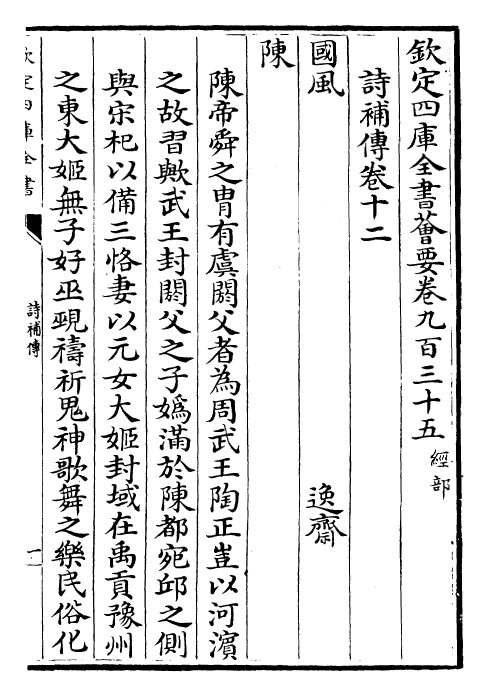 欽定四庫全書薈要卷九百三十五 經部
詩補傳卷十二
國風 逸齋
陳
陳帝舜之胄有虞閼父者為周武王陶正豈以河濱
之故習歟武王封閼父之子媯滿於陳都宛邱之側
與宋杞以備三恪妻以元女大姬封域在禹貢豫州
之東大姬無子好巫覡禱祈鬼神歌舞之樂民俗化
欽定四庫全書
詩補傳
一